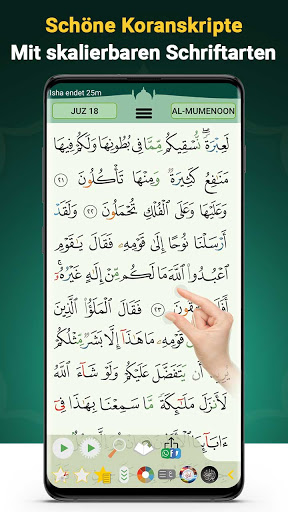 Schöne Koranskripte
Mit skalierbaren Schriftarten
Isha endet 25m
JUZ 18
AL-MUMENOON
لَعِبْرَةً نُّسْقِيكُم مِّمَّا فِى بُطُونِهَا وَلَكُمْ فِيهَا
مَنَٰفِعُ كَثِيرَةٌ وَمِنْهَا تَأْكُلُونَ ٢١
وَعَلَيْهَا وَعَلَى ٱلْفُلْكِ تُحْمَلُونَ ٢٢ وَلَقَدْ
أَرْسَلْنَا نُوحًا إِلَىٰ قَوْمِهِۦ فَقَالَ يَٰقَوْمِ
ٱعْبُدُوا۟ ٱللَّهَ مَا لَكُم مِّنْ إِلَٰهٍ غَيْرُهُۥٓ ۖ
٢٣ فَقَالَ ٱلْمَلَؤُا۟ ٱلَّذِينَ
قَوْمِهِۦ مَا هَٰذَآ إِلَّا بَشَرٌ مِّثْلُكُمْ
أَن يَتَفَضَّلَ عَلَيْكُمْ وَلَوْ شَآءَ ٱللَّهُ
لَأَنزَلَ مَلَٰٓئِكَةً مَّا سَمِعْنَا بِهَٰذَا فِىٓ